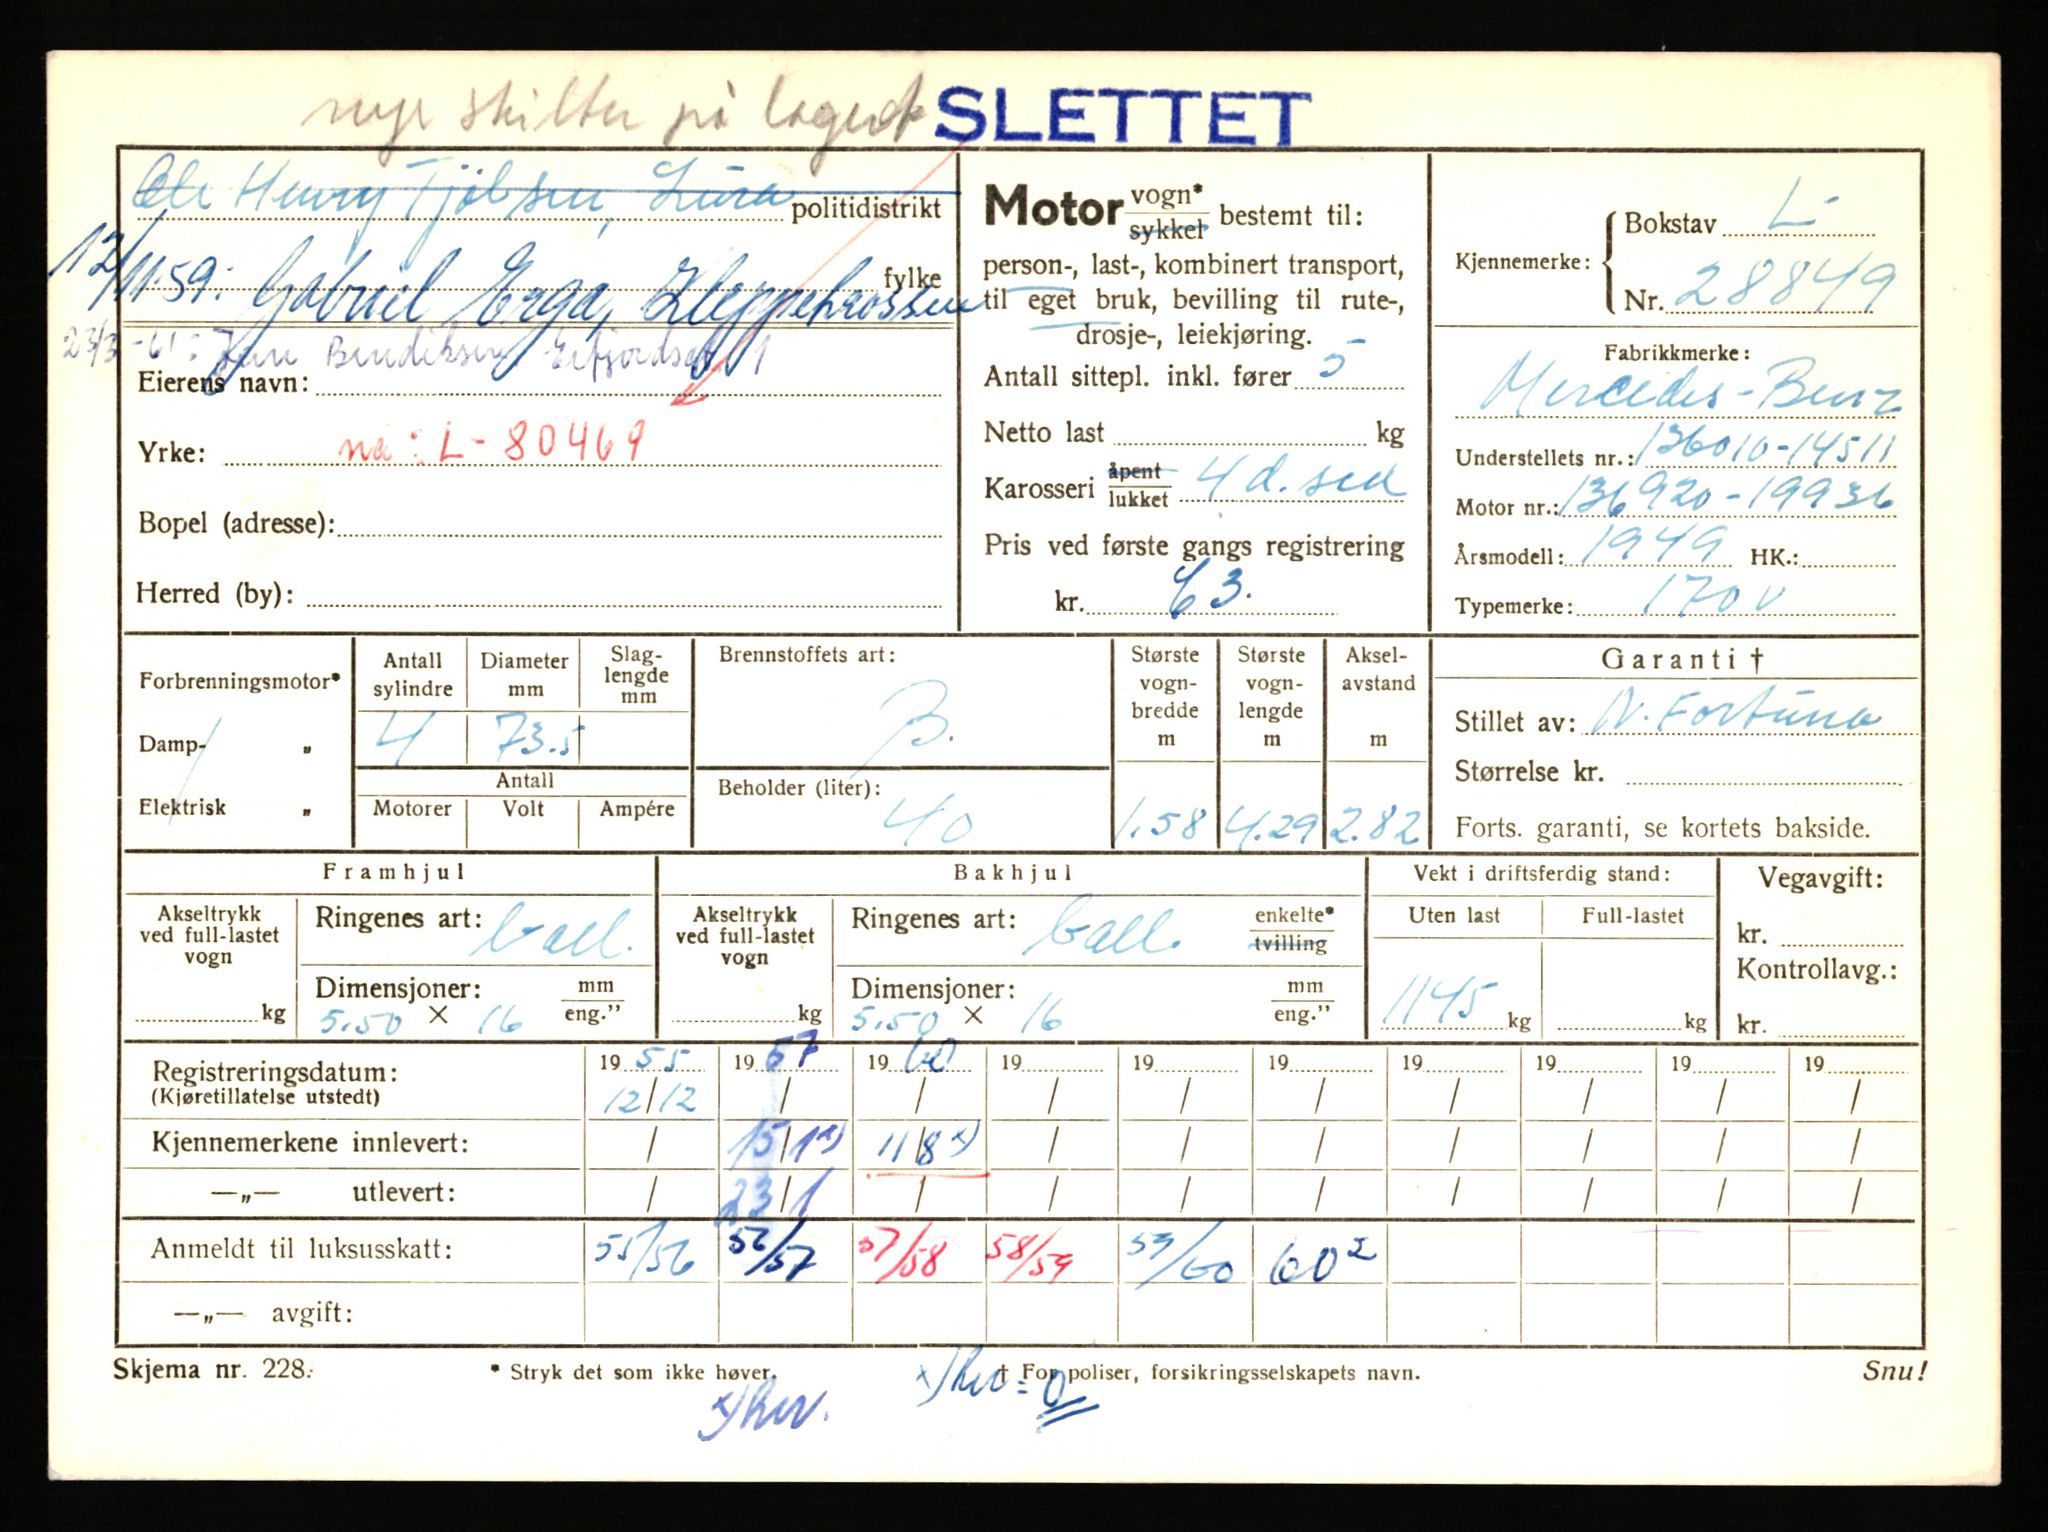 nye skilter på lageret SLETTET
Ole Henry Tjølsen, Lura politidistrikt
12/11-59: Gabriel Erga, Kleppekrossen fylke
23/3-61: Bendiksen
Eierens navn:
Yrke: nå: L-80469
Bopel (adresse):
Herred (by):
Motor vogn*/sykkel bestemt til:
person-, last-, kombinert transport,
til eget bruk, bevilling til rute-,
drosje-, leiekjøring.
Antall sittepl. inkl. fører 5
Netto last kg
Karosseri åpent/lukket 4 d. sed
Pris ved første gangs registrering
kr. 63.
Kjennemerke: Bokstav L-
Nr. 28849
Fabrikkmerke:
Mercedes-Benz
Understellets nr.: 136010-14511
Motor nr.: 136920-19936
Årsmodell: 1949 HK.:
Typemerke: 170 V
Forbrenningsmotor*
Damp- „
Elektrisk „
Antall sylindre 4
Diameter mm 73.5
Slaglengde mm
Antall
Motorer Volt Ampére
Brennstoffets art: B.
Beholder (liter): 40
Største vognbredde m 1.58
Største vognlengde m 4.29
Akselavstand m 2.82
Garanti †
Stillet av: N. Fortuna
Størrelse kr.
Forts. garanti, se kortets bakside.
Framhjul
Akseltrykk ved full-lastet vogn kg
Ringenes art: ball.
Dimensjoner: mm/eng."
5.50 × 16
Bakhjul
Akseltrykk ved full-lastet vogn kg
Ringenes art: ball. enkelte*/tvilling
Dimensjoner: mm/eng."
5.50 × 16
Vekt i driftsferdig stand:
Uten last Full-lastet
1145 kg kg
Vegavgift:
kr.
Kontrollavg.:
kr.
Registreringsdatum: 19 55 19 57 19 60 19 19 19 19 19 19 19
(Kjøretillatelse utstedt) 12/12 / / / / / / / / /
Kjennemerkene innlevert: / 15/1 x) 11/8 x) / / / / / / /
—„— utlevert: / 23/1 / / / / / / / /
Anmeldt til luksusskatt: 55/56 56/57 57/58 58/59 59/60 60²
—„— avgift:
Skjema nr. 228. * Stryk det som ikke høver. † For poliser, forsikringsselskapets navn. Snu!